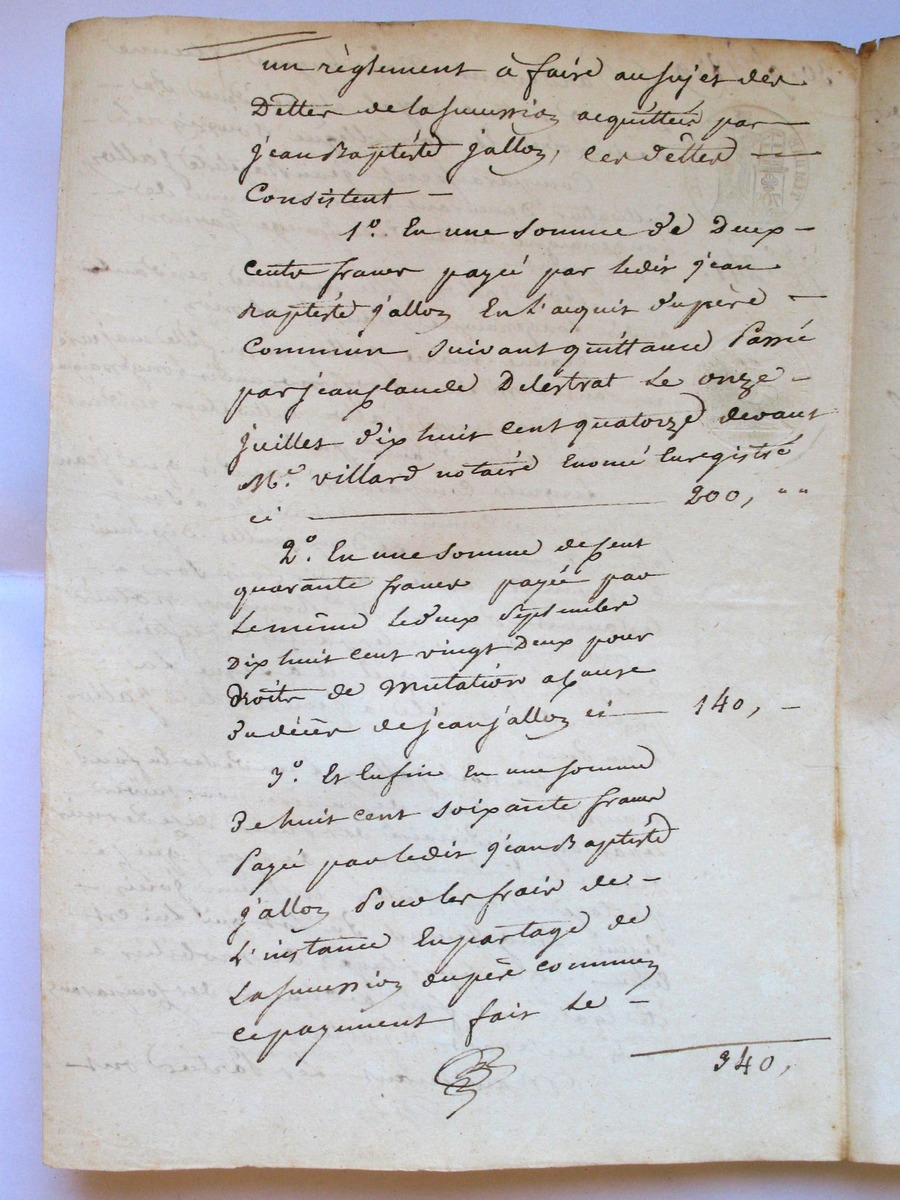 un règlement à faire au sujet des
Dettes de la succession acquittées par
jean Baptiste jallon, ces dettes
Consistent
1º. En une somme de Deux
cents francs payée par ledit jean
Baptiste jallon En l'acquit du père
Commun suivant quittance Passée
par jean Claude Delestrat Le onze
juillet dix huit cent quatorze devant
Me. villard notaire Enregistré
ci 200, " "
2º. En une somme de Cent
quarante francs payée par
Le même Le deux Septembre
Dix huit cent vingt Deux pour
Droits de Mutation a Cause
Du décès de jean jallon ci 140,
3º. Et Enfin En une somme
De huit cent soixante francs
Payée par ledit jean Baptiste
jallon Pour les frais de
L'instance En partage de
La succession du père commun
ce payement fait Le
340,